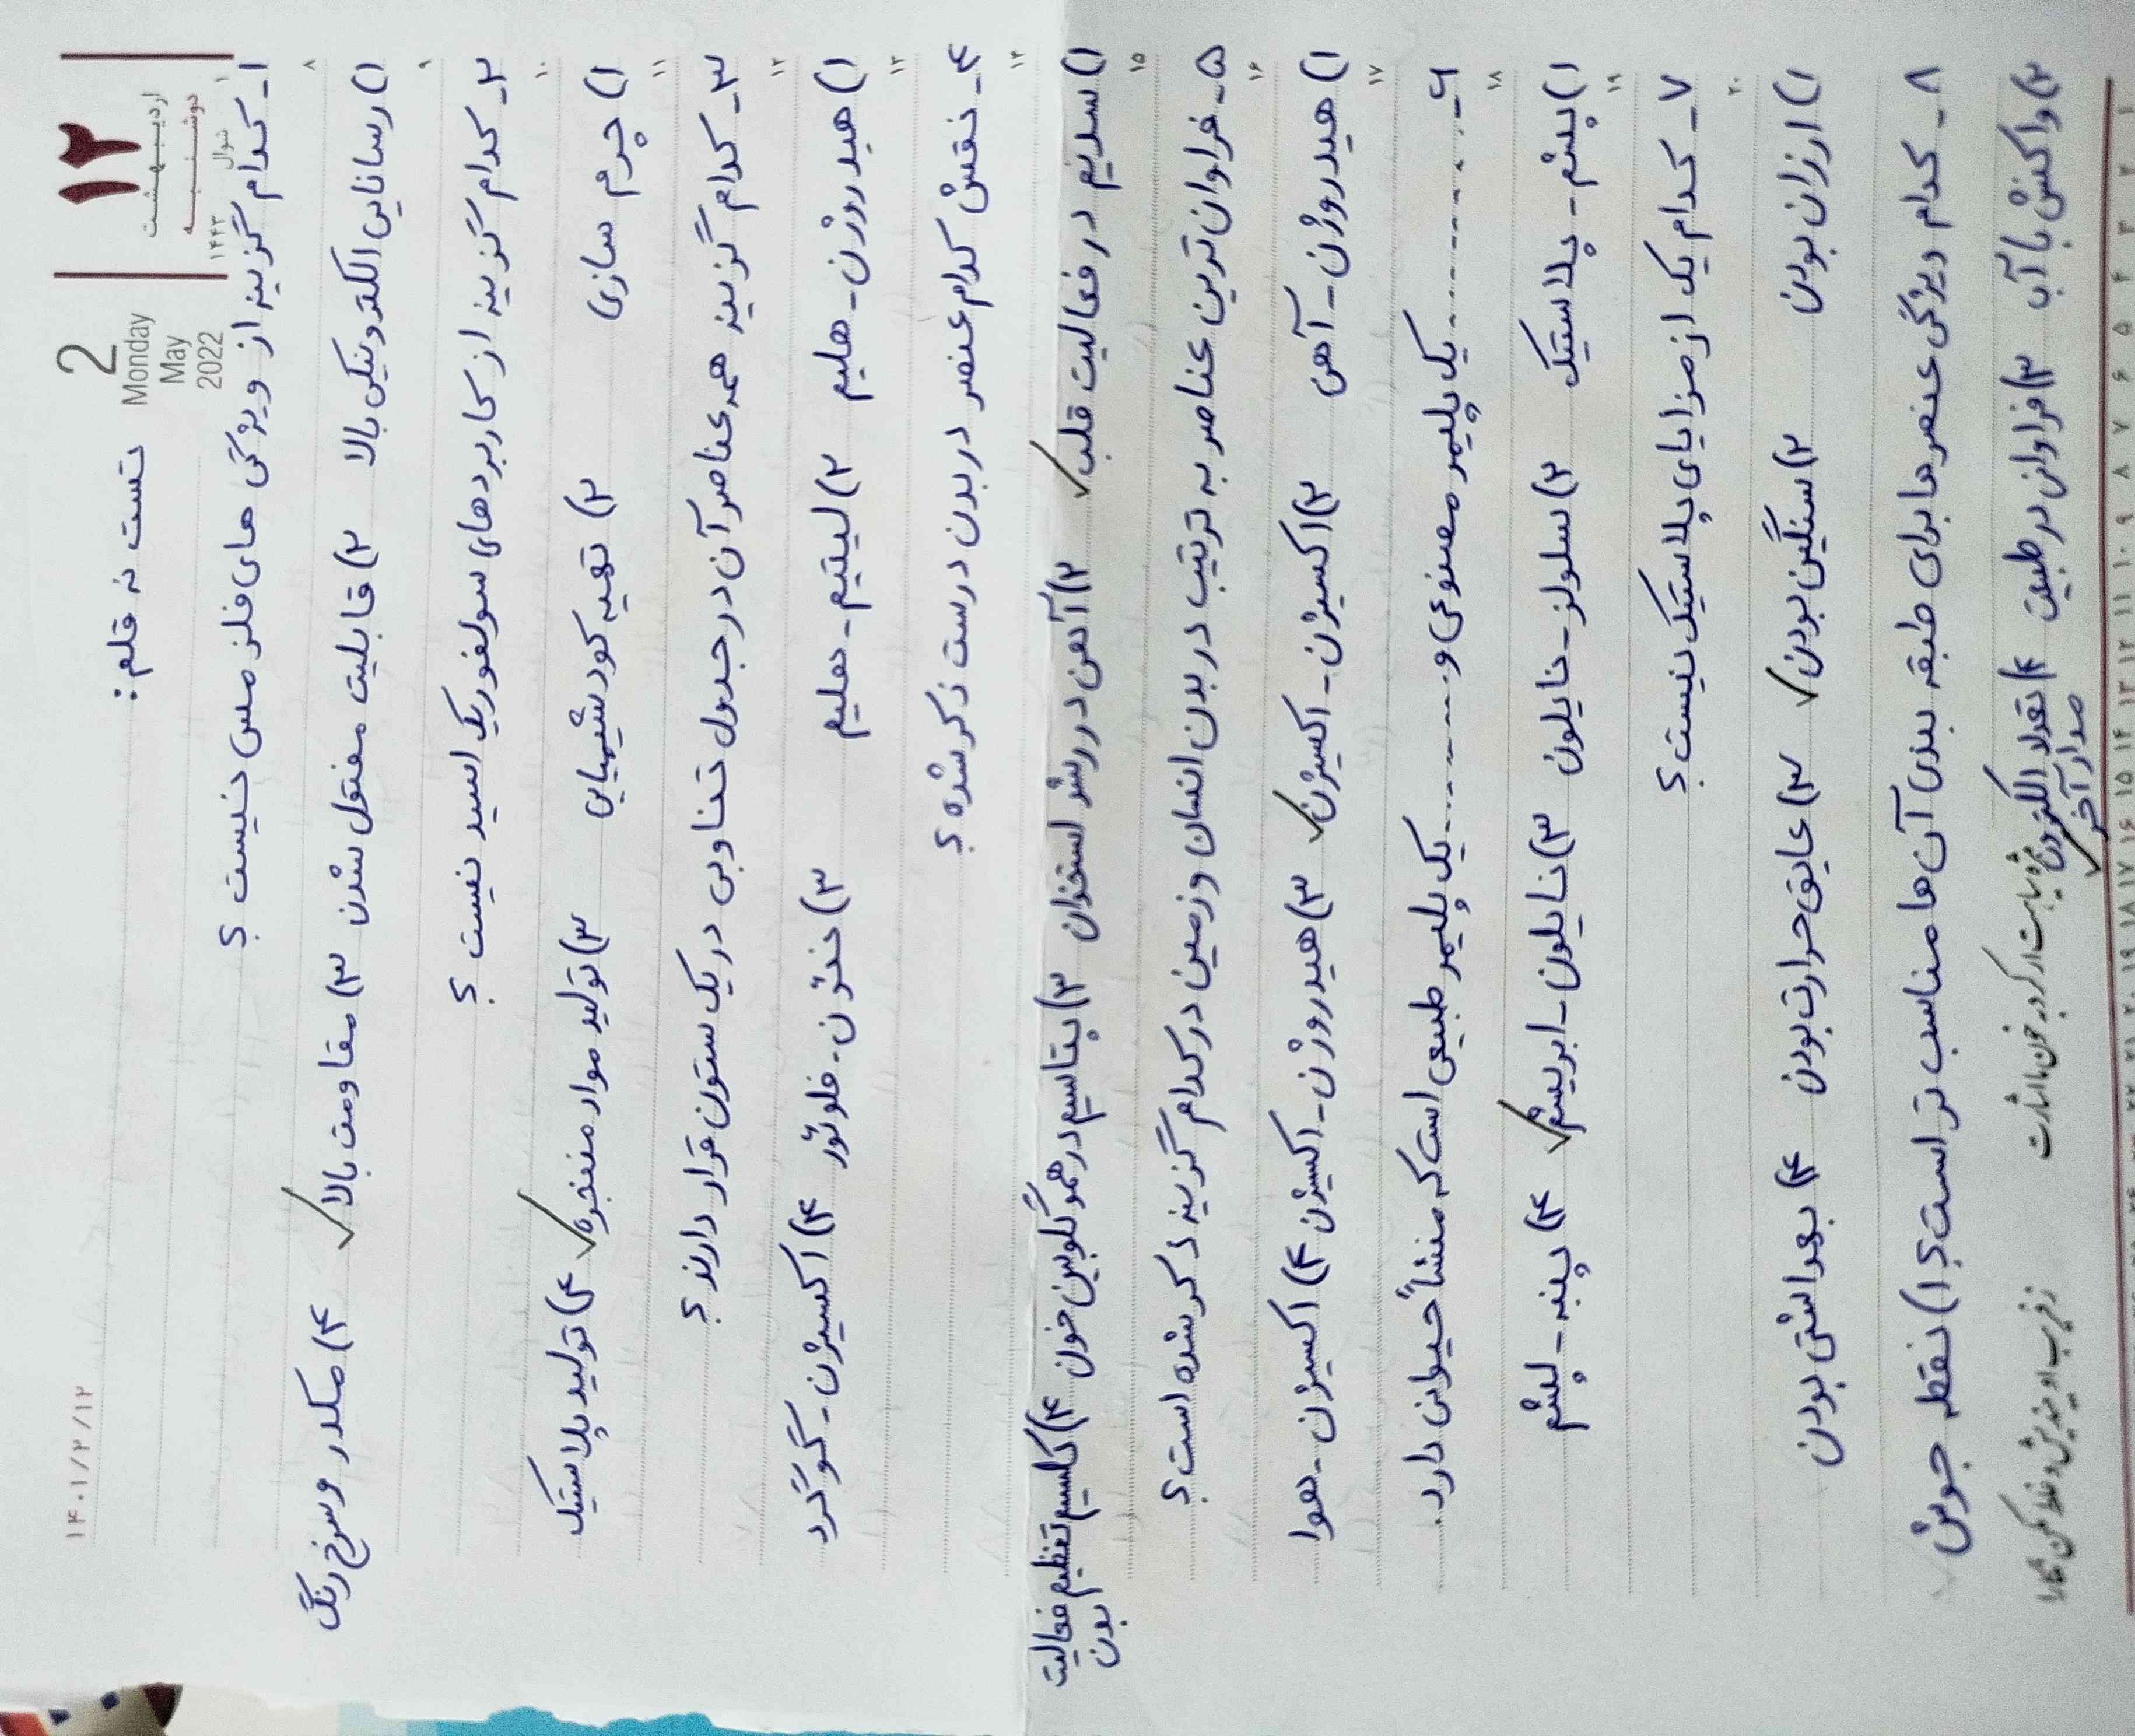 ۱۴۰۱/۲/۱۲
2
Monday
May
2022
۱۲
اردیبهشت
دوشنبه
شوال
۱۴۴۳
تست نه قلم:
۱_ کدام گزینه از ویژگی های فلز مس نیست ؟
۱) رسانایی الکترونیکی بالا ۲) قابلیت مفتول شدن ۳) مقاومت بالا ✓ ۴) مکدر و سرخ رنگ
۲_ کدام گزینه از کاربردهای سولفوریک اسید نیست ؟
۱) چرم سازی ۲) تهیه کود شیمیایی ۳) تولید مواد منفجره ✓ ۴) تولید پلاستیک
۳_ کدام گزینه همه عناصر آن در جدول تناوبی در یک ستون قرار دارند ؟
۱) هیدروژن - هلیم ۲) لیتیم - هلیم ۳) نئون - فلوئور ۴) اکسیژن - گوگرد
۴_ نقش کدام عنصر در بدن درست ذکر شده ؟
۱) سدیم در فعالیت قلب ✓ ۲) آهن در رشد استخوان ۳) پتاسیم در هموگلوبین خون ۴) کلسیم تنظیم فعالیت بدن
۵_ فراوان ترین عناصر به ترتیب در بدن انسان و زمین در کدام گزینه ذکر شده است ؟
۱) هیدروژن - آهن ۲) اکسیژن - اکسیژن ✓ ۳) هیدروژن - اکسیژن ۴) اکسیژن - هوا
۶_ .......... یک پلیمر مصنوعی و .......... یک پلیمر طبیعی است که منشأ حیوانی دارد.
۱) پشم - پلاستیک ۲) سلولز - نایلون ۳) نایلون - ابریشم ✓ ۴) پنبه - پشم
۷_ کدام یک از مزایای پلاستیک نیست ؟
۱) ارزان بودن ۲) سنگین بودن ✓ ۳) عایق حرارت بودن ۴) بهداشتی بودن
۸_ کدام ویژگی عنصرها برای طبقه بندی آن ها مناسب تر است ؟ ۱) نقطه جوش
۲) واکنش با آب ۳) فراوانی در طبیعت ۴) تعداد الکترون مدار آخر ✓
۱ ۲ ۳ ۴ ۵ ۶ ۷ ۸ ۹ ۱۰ ۱۱ ۱۲ ۱۳ ۱۴ ۱۵ ۱۶ ۱۷ ۱۸ ۱۹ ۲۰ ۲۱